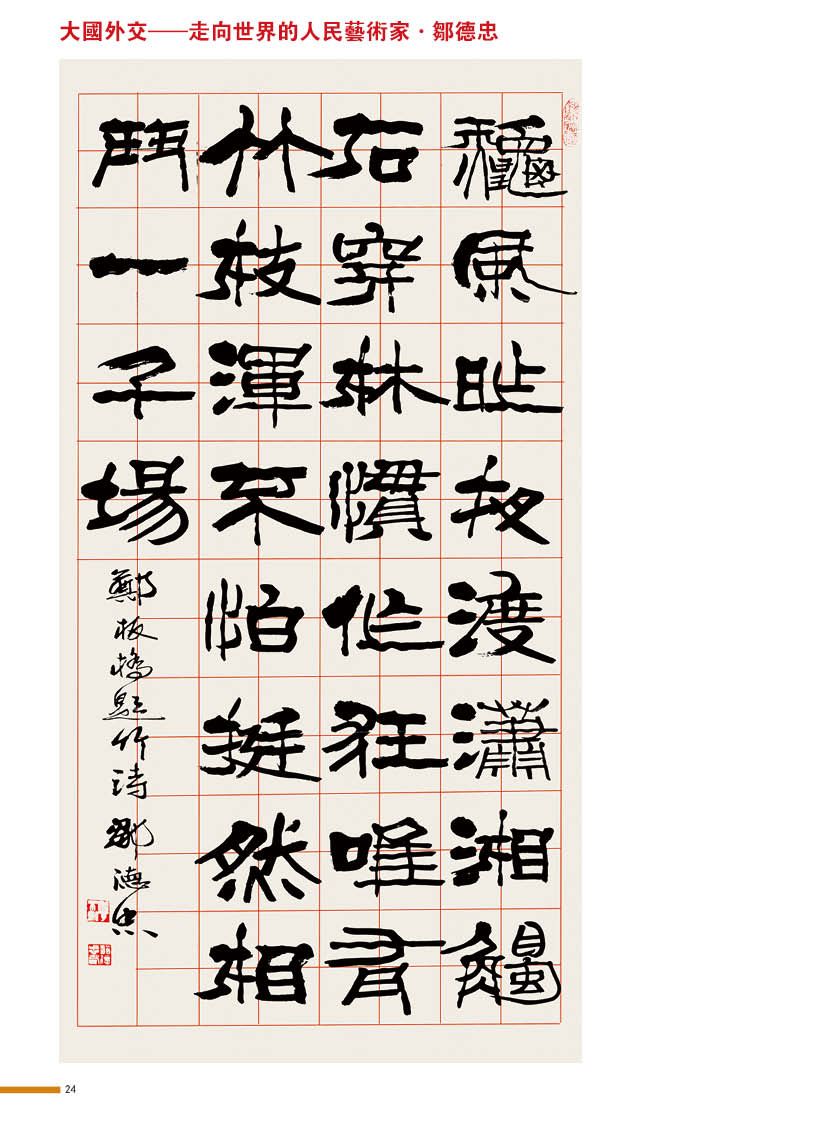 大國外交——走向世界的人民藝術家·鄒德忠
龝風昨夜渡瀟湘觸
石穿林慣作狂唯有
竹枝渾不怕挺然相
鬥一千場
鄭板橋題竹詩 鄒德忠
24